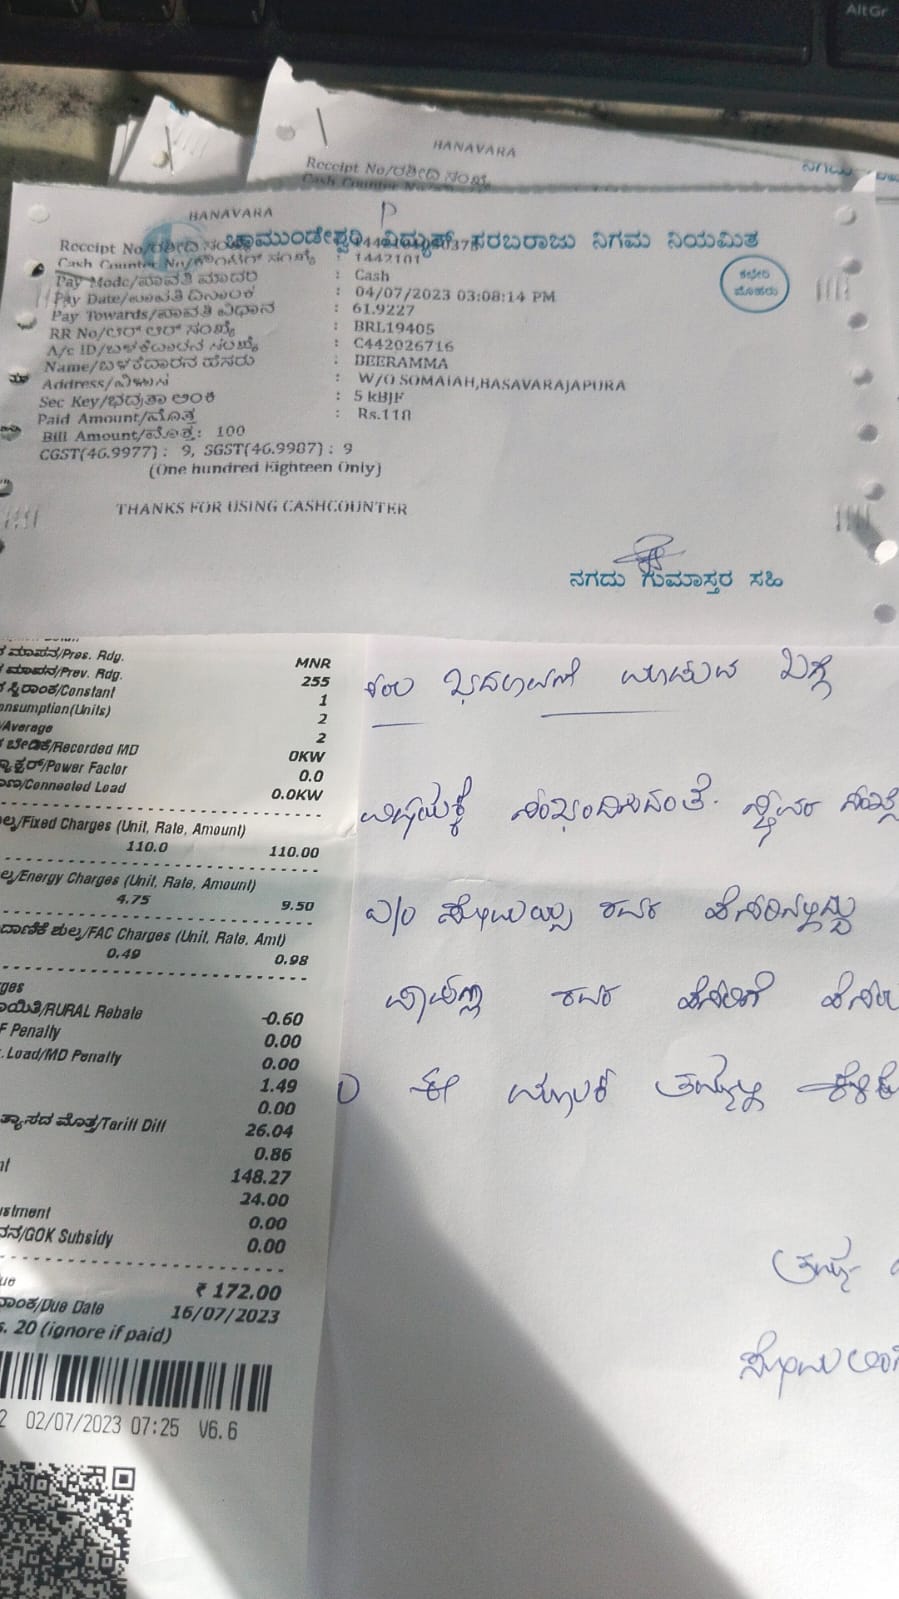 AltGr
HANAVARA
Receipt No/ರಶೀದಿ ಸಂಖ್ಯೆ
ನಗದು
HANAVARA
ಚಾಮುಂಡೇಶ್ವರಿ ವಿದ್ಯುತ್ ಸರಬರಾಜು ನಿಗಮ ನಿಯಮಿತ
Receipt No/ರಶೀದಿ ಸಂಖ್ಯೆ
Cash Counter No/ಕೌಂಟರ್ ಸಂಖ್ಯೆ : 1442101
Pay Mode/ಪಾವತಿ ಮಾದರಿ : Cash
ಕಛೇರಿ
ಮೊಹರು
Pay Date/ಪಾವತಿ ದಿನಾಂಕ : 04/07/2023 03:08:14 PM
Pay Towards/ಪಾವತಿ ವಿಧಾನ : 61.9227
RR No/ಆರ್ ಆರ್ ಸಂಖ್ಯೆ : BRL19405
A/c ID/ಬಳಕೆದಾರನ ಸಂಖ್ಯೆ : C442026716
Name/ಬಳಕೆದಾರನ ಹೆಸರು : DEERAMMA
Address/ವಿಳಾಸ : W/O SOMAIAH,BASAVARAJAPURA
Sec Key/ಭದ್ರತಾ ಅಂಕಿ : 5 kBJF
Paid Amount/ಮೊತ್ತ : Rs.118
Bill Amount/ಮೊತ್ತ: 100
CGST(46.9977) : 9, SGST(46.9987) : 9
(One hundred Eighteen Only)
THANKS FOR USING CASHCOUNTER
ನಗದು ಗುಮಾಸ್ತರ ಸಹಿ
ಮಾಪನ/Pres. Rdg. MNR
ಮಾಪನ/Prev. Rdg. 255
ಸ್ಥಿರಾಂಕ/Constant 1
onsumption(Units) 2
/Average 2
ಬೇಡಿಕೆ/Recorded MD 0KW
/Power Factor 0.0
/Connected Load 0.0KW
/Fixed Charges (Unit, Rate, Amount)
110.0 110.00
/Energy Charges (Unit, Rate, Amount)
4.75 9.50
ದಾಣಿಕೆ ಶುಲ್ಕ/FAC Charges (Unit, Rate, Amt)
0.49 0.98
ges
ಯಿತಿ/RURAL Rebate -0.60
F Penalty 0.00
. Load/MD Penalty 0.00
1.49
0.00
ತ್ಯಾಸದ ಮೊತ್ತ/Tariff Diff 26.04
0.86
nt 148.27
24.00
ustment 0.00
/GOK Subsidy 0.00
ue ₹ 172.00
ನಾಂಕ/Due Date 16/07/2023
s. 20 (ignore if paid)
2 02/07/2023 07:25 V6.6
ಬದಲಾವಣೆ ಮಾಡುವ ಬಗ್ಗೆ
ವಿಷಯಕ್ಕೆ ಸಂಬಂಧಿಸಿದಂತೆ. ಸ್ಥಾವರ ಸಂಖ್ಯೆ
ರವರ ಹೆಸರಿನಲ್ಲಿದ್ದು
ರವರ ಹೆಸರಿಗೆ
ಈ ಮೂಲಕ ತಮ್ಮಲ್ಲಿ